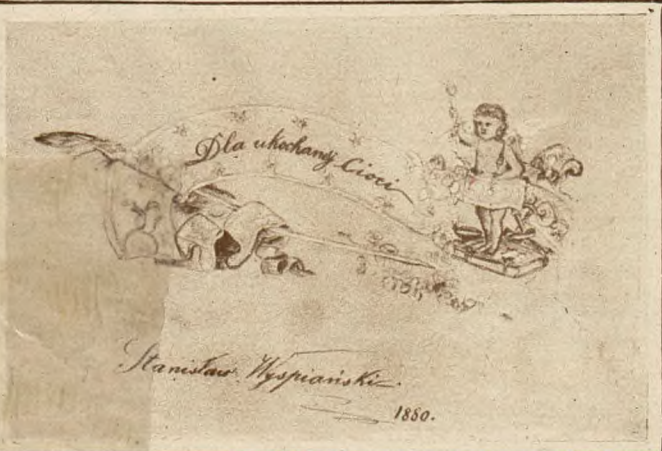 Dla ukochanej Cioci
Stanisław Wyspiański.
1880.